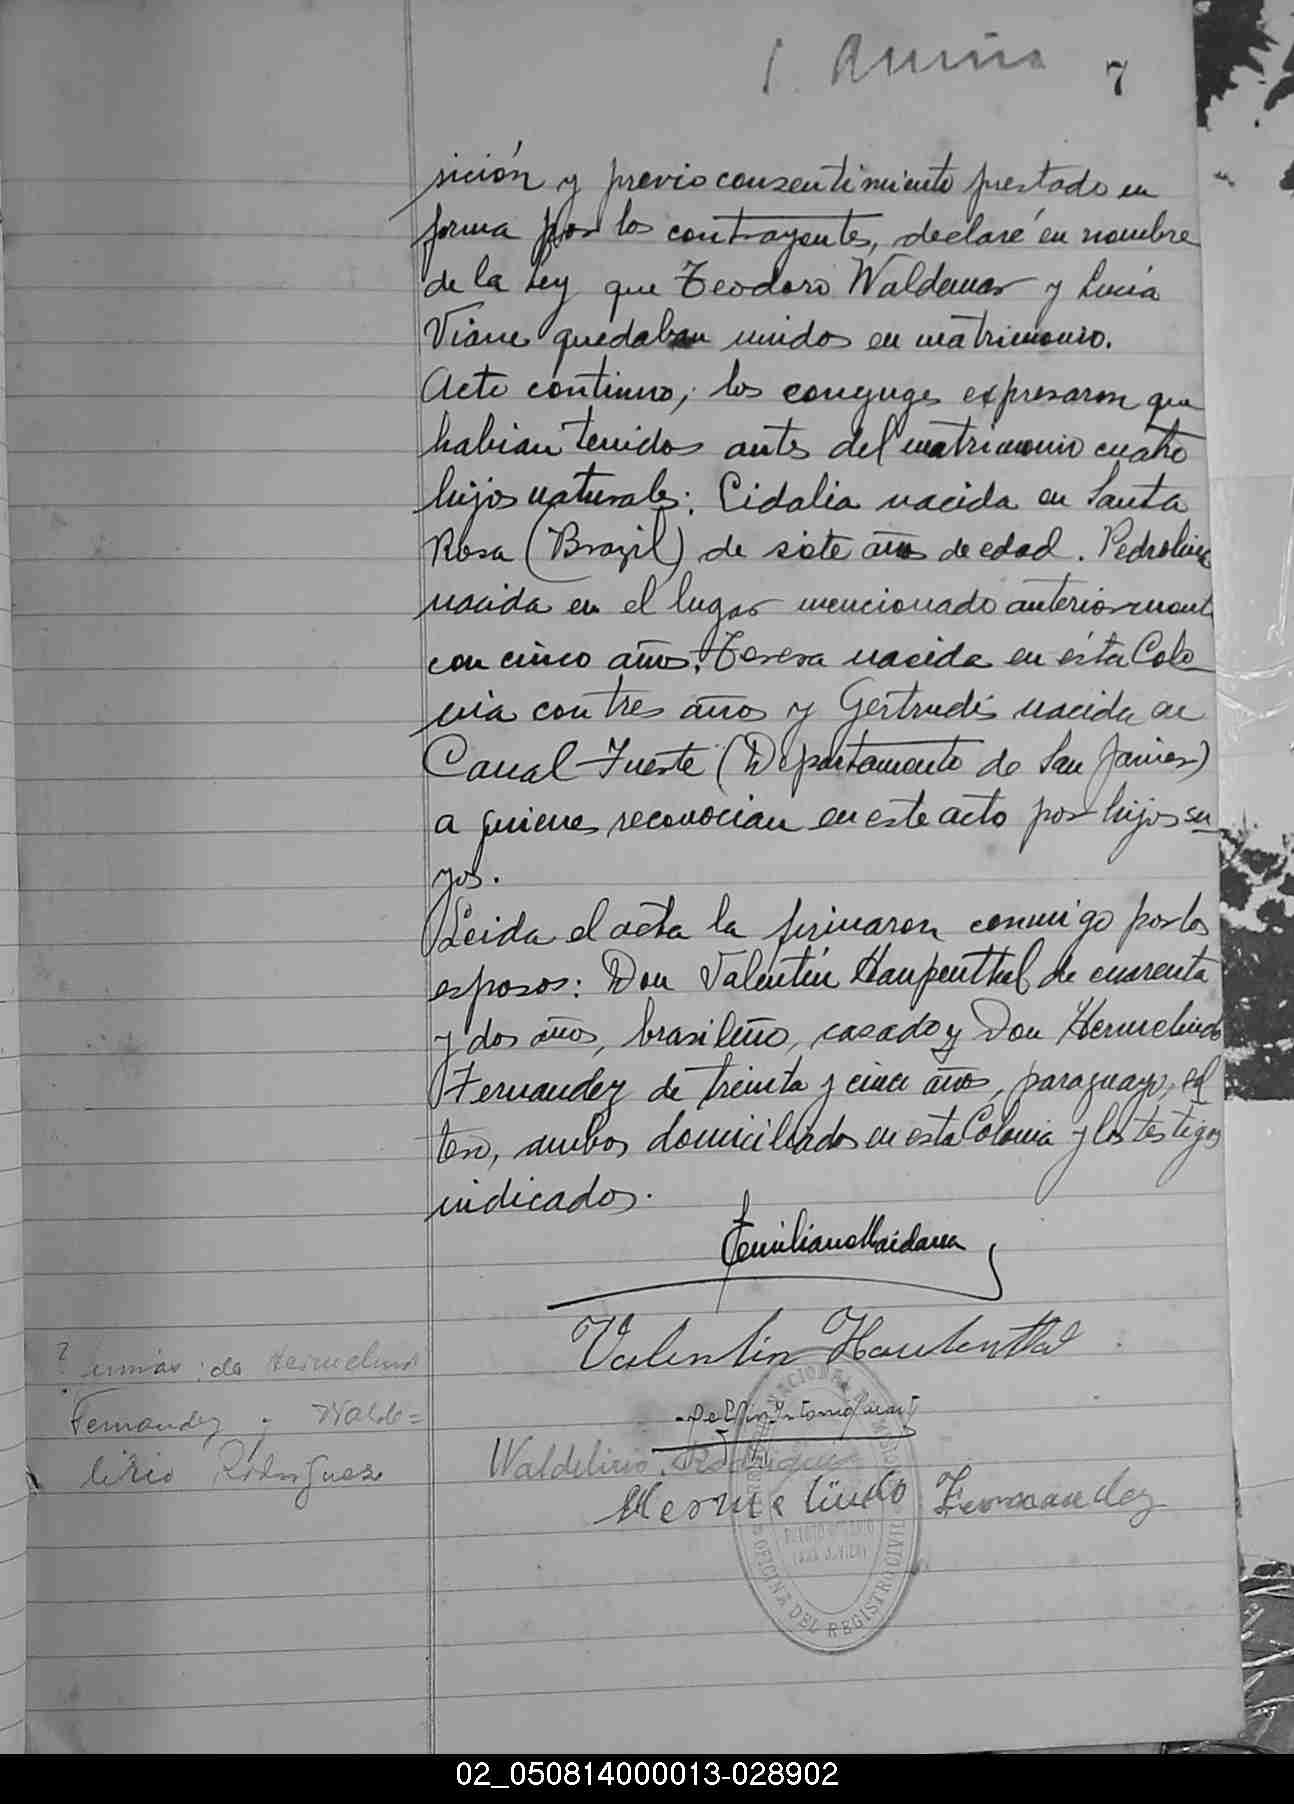 7
sición y previo consentimiento prestado en
forma por los contrayentes, declaré en nombre
de la Ley que Teodoro Waldemar y Lucía
Viane quedaban unidos en matrimonio.
Acto continuo, los conyuges expresaron que
habian tenidos antes del matrimonio cuatro
hijos naturales: Cidalia nacida en Santa
Rosa (Brazil) de siete años de edad. Pedrolina
nacida en el lugar mencionado anteriorment
con cinco años, Teresa nacida en ésta Colo
nia con tres años y Gertrudis nacida en
Canal Fuerte (Departamento de San Javier)
a quienes reconocian en este acto por hijos su
yos.
Leida el acta la firmaron conmigo por los
esposos: Don Valentín Haupenthal de cuarenta
y dos años, brasileño, casado y Don Hermelindo
Fernandez de treinta y cinco años, paraguayo, sol
tero, ambos domiciliados en esta Colonia y los testigos
indicados.
Emiliano Maidana
Valentin Hautenthal
? firmas: de Hermelindo
Fernandez y Walde=
lirio Rodriguez
Waldelirio Rodriguez
Hermelindo Fernandez
OFICINA DEL REGISTRO CIVIL